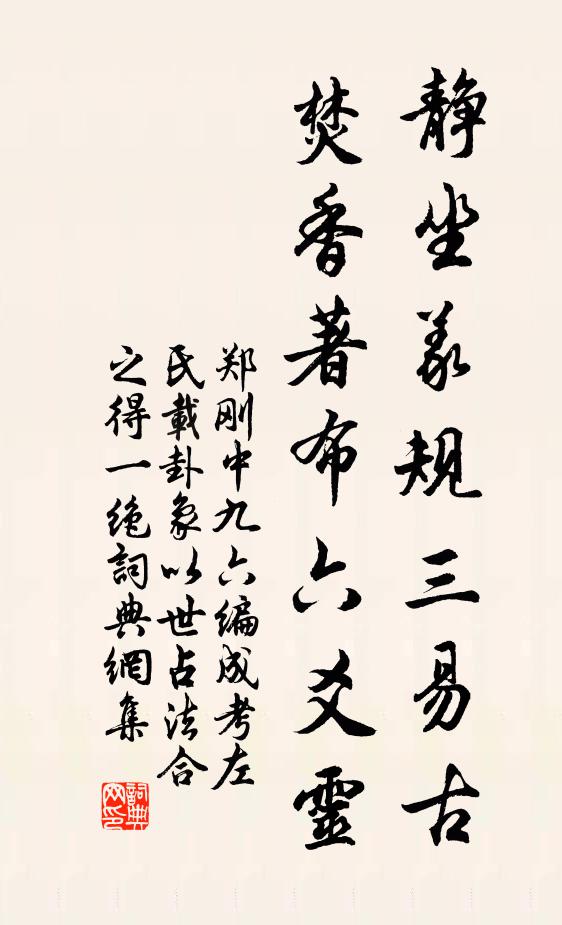 静坐義規三易古
焚香著布六爻靈
郑刚中九六编成考左
氏載卦象以世占法合
之得一绝詞典網集
詞典网印